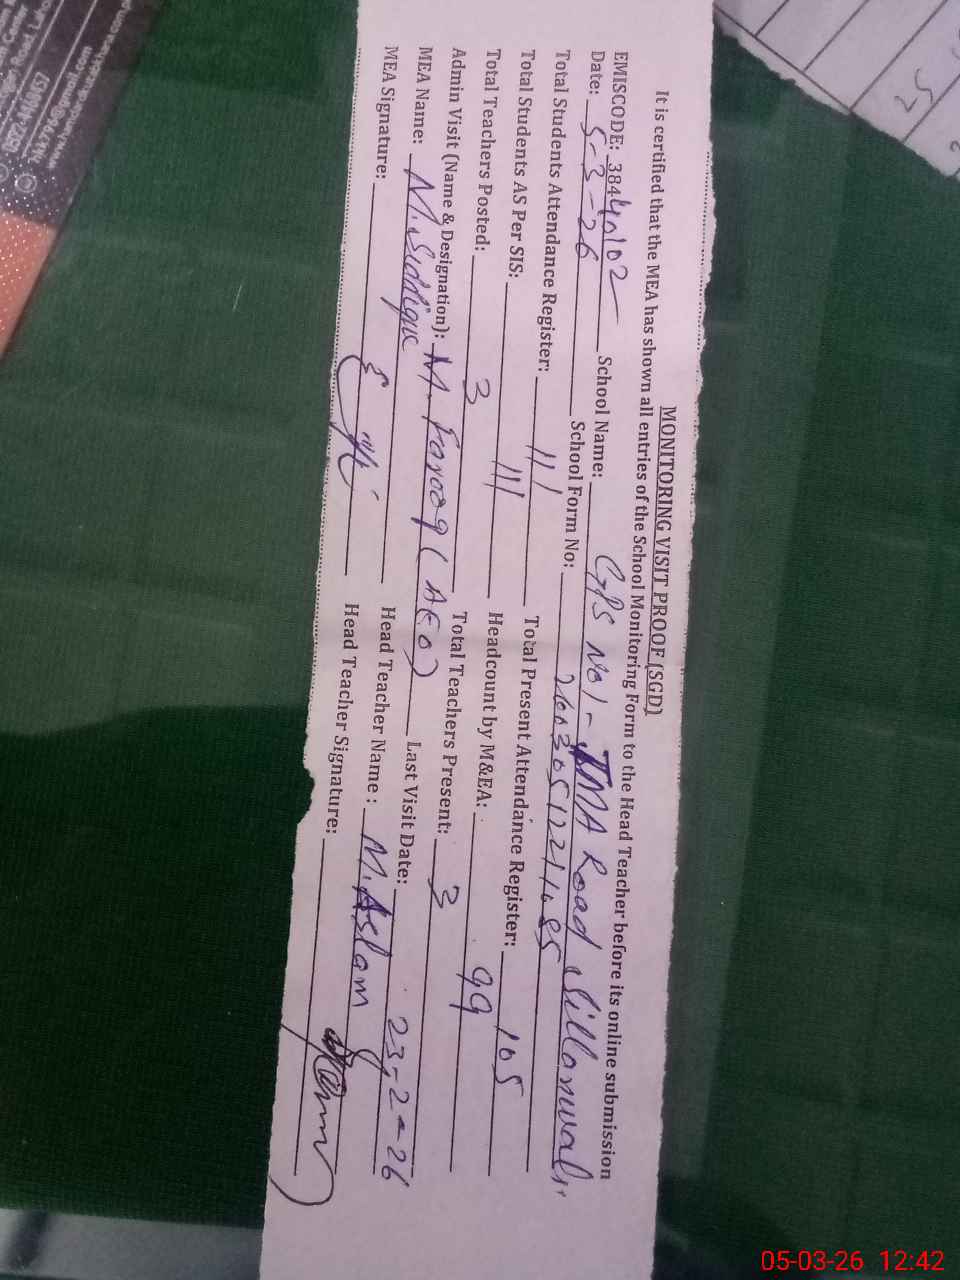 MONITORING VISIT PROOF (SGD)
It is certified that the MEA has shown all entries of the School Monitoring Form to the Head Teacher before its online submission
EMISCODE: 38440102 School Name: GPS No 1 - TMA Road Sillanwali
Date: 5-3-26 School Form No:
Total Students Attendance Register: 111 Total Present Attendance Register: 105
Total Students AS Per SIS: 111 Headcount by M&EA: 99
Total Teachers Posted: 3 Total Teachers Present: 3
Admin Visit (Name & Designation): M. Farooq (AEO) Last Visit Date: 23-2-26
MEA Name: M. Siddique Head Teacher Name: M. Aslam
MEA Signature: Head Teacher Signature:
Center
Road Laho
@gmail.com
05-03-26 12:42